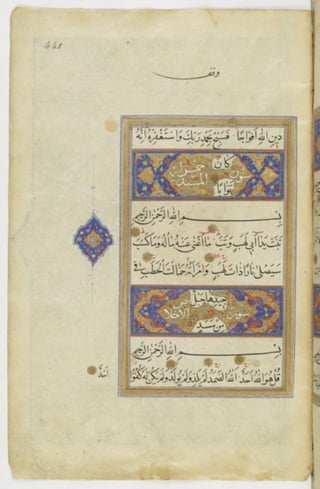 448
وقف
دين الله افواجا فسبح بحمد ربك واستغفره انه
كان توابا
سورة خمس
بسم الله الرحمن الرحيم
تبت يدا ابي لهب وتب ما اغنى عنه ماله وما كسب
سيصلى نارا ذات لهب وامراته حمالة الحطب في
جيدها حبل من مسد
سورة الاخلاص
بسم الله الرحمن الرحيم
قل هو الله احد الله الصمد لم يلد ولم يولد ولم يكن له كفوا
احد